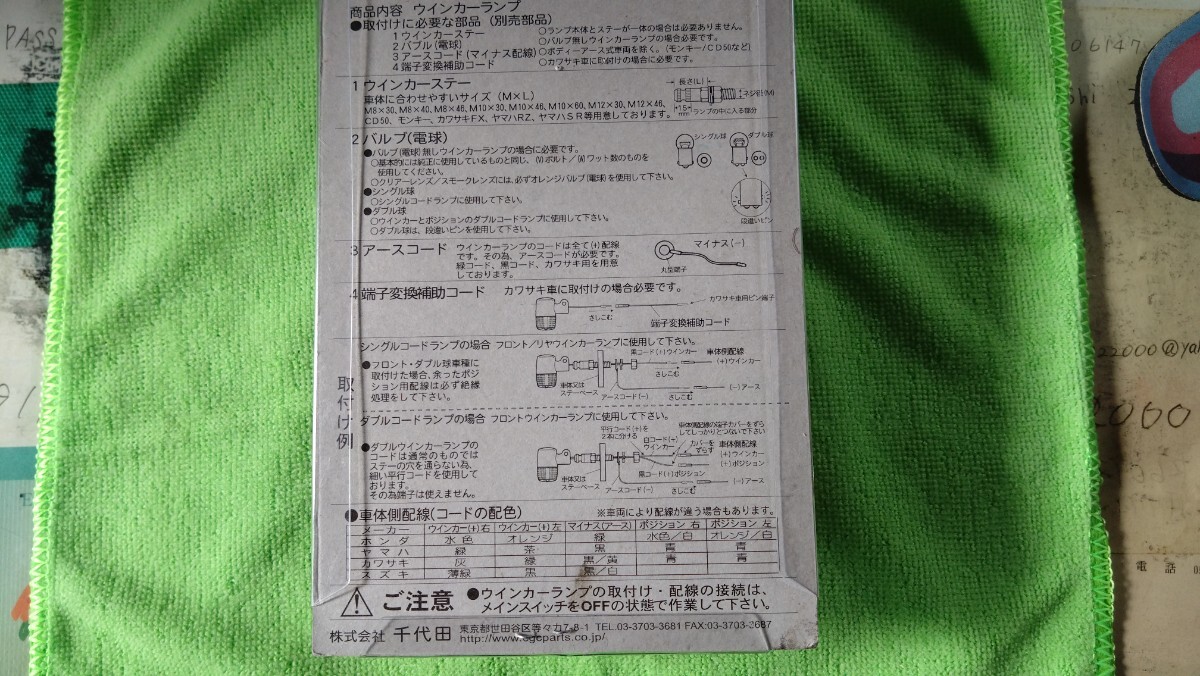 商品内容 ウインカーランプ
●取付けに必要な部品（別売部品）
1 ウインカーステー ○ランプ本体とステーが一体の場合は必要ありません。
2 バブル(電球) ○バルブ無しウインカーランプの場合必要です。
3 アースコード(マイナス配線) ○ボディーアース式車両を除く。(モンキー/CD50など)
4 端子変換補助コード ○カワサキ車に取付けの場合に必要です。
1 ウインカーステー
車体に合わせやすいサイズ(M×L)
M8×30、M8×40、M8×46、M10×30、M10×46、M10×60、M12×30、M12×46、
CD50、モンキー、カワサキFX、ヤマハRZ、ヤマハSR等用意しております。
長さ(L)
ネジ径(M)
15mm
ランプの中に入る部分
2 バルブ(電球)
●バルブ(電球)無しウインカーランプの場合に必要です。
○基本的には純正に使用しているものと同じ、(V)ボルト/(W)ワット数のものを
使用してください。
○クリアーレンズ/スモークレンズには、必ずオレンジバルブ(電球)を使用して下さい。
●シングル球
○シングルコードランプに使用して下さい。
●ダブル球
○ウインカーとポジションのダブルコードランプに使用して下さい。
○ダブル球は、段違いピンを使用して下さい。
シングル球 ダブル球
段違いピン
3 アースコード
ウインカーランプのコードは全て(+)配線
です。その為、アースコードが必要です。
緑コード、黒コード、カワサキ用を用意
しております。
マイナス(－)
丸型端子
4 端子変換補助コード カワサキ車に取付けの場合必要です。
カワサキ車用ピン端子
さしこむ
端子変換補助コード
取付け例
シングルコードランプの場合 フロント/リヤウインカーランプに使用して下さい。
●フロント・ダブル球車種に
取付けた場合、余ったポジ
ション用配線は必ず絶縁
処理をして下さい。
黒コード(+)ウインカー 車体側配線
(+)ウインカー
さしこむ
車体又は
ステーベース
アースコード(－) さしこむ
(－)アース
ダブルコードランプの場合 フロントウインカーランプに使用して下さい。
●ダブルウインカーランプの
コードは通常のものでは
ステーの穴を通らない為、
細い平行コードを使用して
おります。
その為端子は使えません。
平行コード(+)を
2本に分ける
車体側配線の端子カバーをずら
してしっかりとつないで下さい
白コード(+)
ウインカー
カバーを
ずらす
車体側配線
(+)ウインカー
(+)ポジション
黒コード(+)ポジション
車体又は
ステーベース
アースコード(－) さしこむ
(－)アース
●車体側配線(コードの配色) ※車両により配線が違う場合もあります。
メーカー ウインカー(+)右 ウインカー(+)左 マイナス(アース) ポジション 右 ポジション 左
ホンダ 水色 オレンジ 緑 水色/白 オレンジ/白
ヤマハ 緑 茶 黒 青 青
カワサキ 灰 緑 黒/黄 青 青
スズキ 薄緑 黒 黒/白
ご注意 ●ウインカーランプの取付け・配線の接続は、
メインスイッチをOFFの状態で作業して下さい。
株式会社 千代田 東京都世田谷区等々力7-8-1 TEL.03-3703-3681 FAX:03-3703-2687
PASS
06147
22000@ya
2000
電話